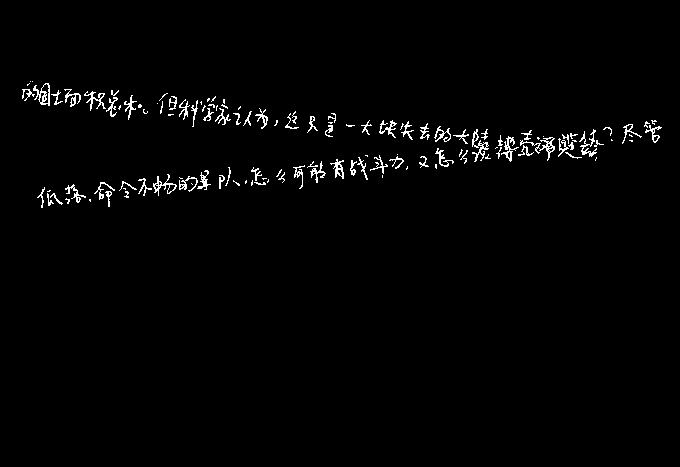 的国土面积总和。但科学家认为,这只是一大块失去的大陆
低落、命令不畅的军队,怎么可能有战斗力,又怎么?尽管